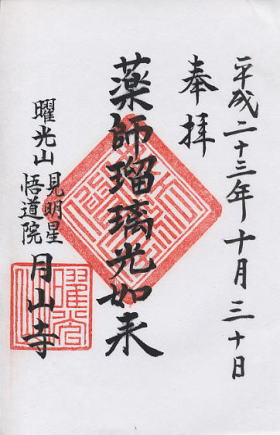 平成二十三年十月三十日
奉拝
薬師瑠璃光如来
曜光山
見明星
悟道院
月山寺